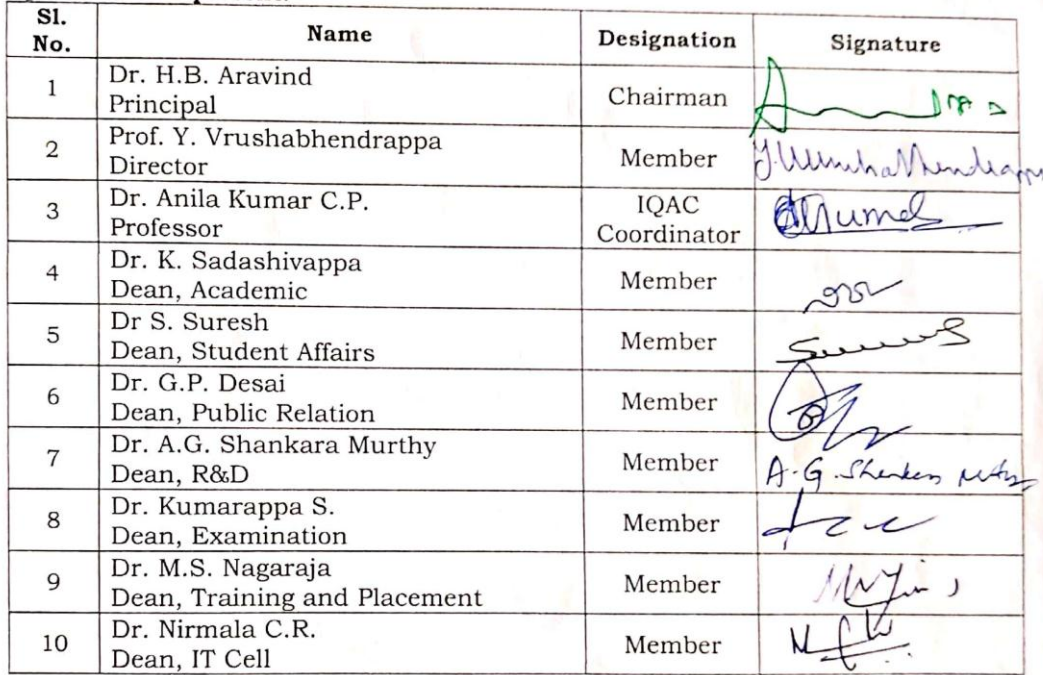 Sl. No.
Name
Designation
Signature
1
Dr. H.B. Aravind
Principal
Chairman
2
Prof. Y. Vrushabhendrappa
Director
Member
3
Dr. Anila Kumar C.P.
Professor
IQAC
Coordinator
4
Dr. K. Sadashivappa
Dean, Academic
Member
5
Dr S. Suresh
Dean, Student Affairs
Member
6
Dr. G.P. Desai
Dean, Public Relation
Member
7
Dr. A.G. Shankara Murthy
Dean, R&D
Member
A.G.
8
Dr. Kumarappa S.
Dean, Examination
Member
9
Dr. M.S. Nagaraja
Dean, Training and Placement
Member
10
Dr. Nirmala C.R.
Dean, IT Cell
Member